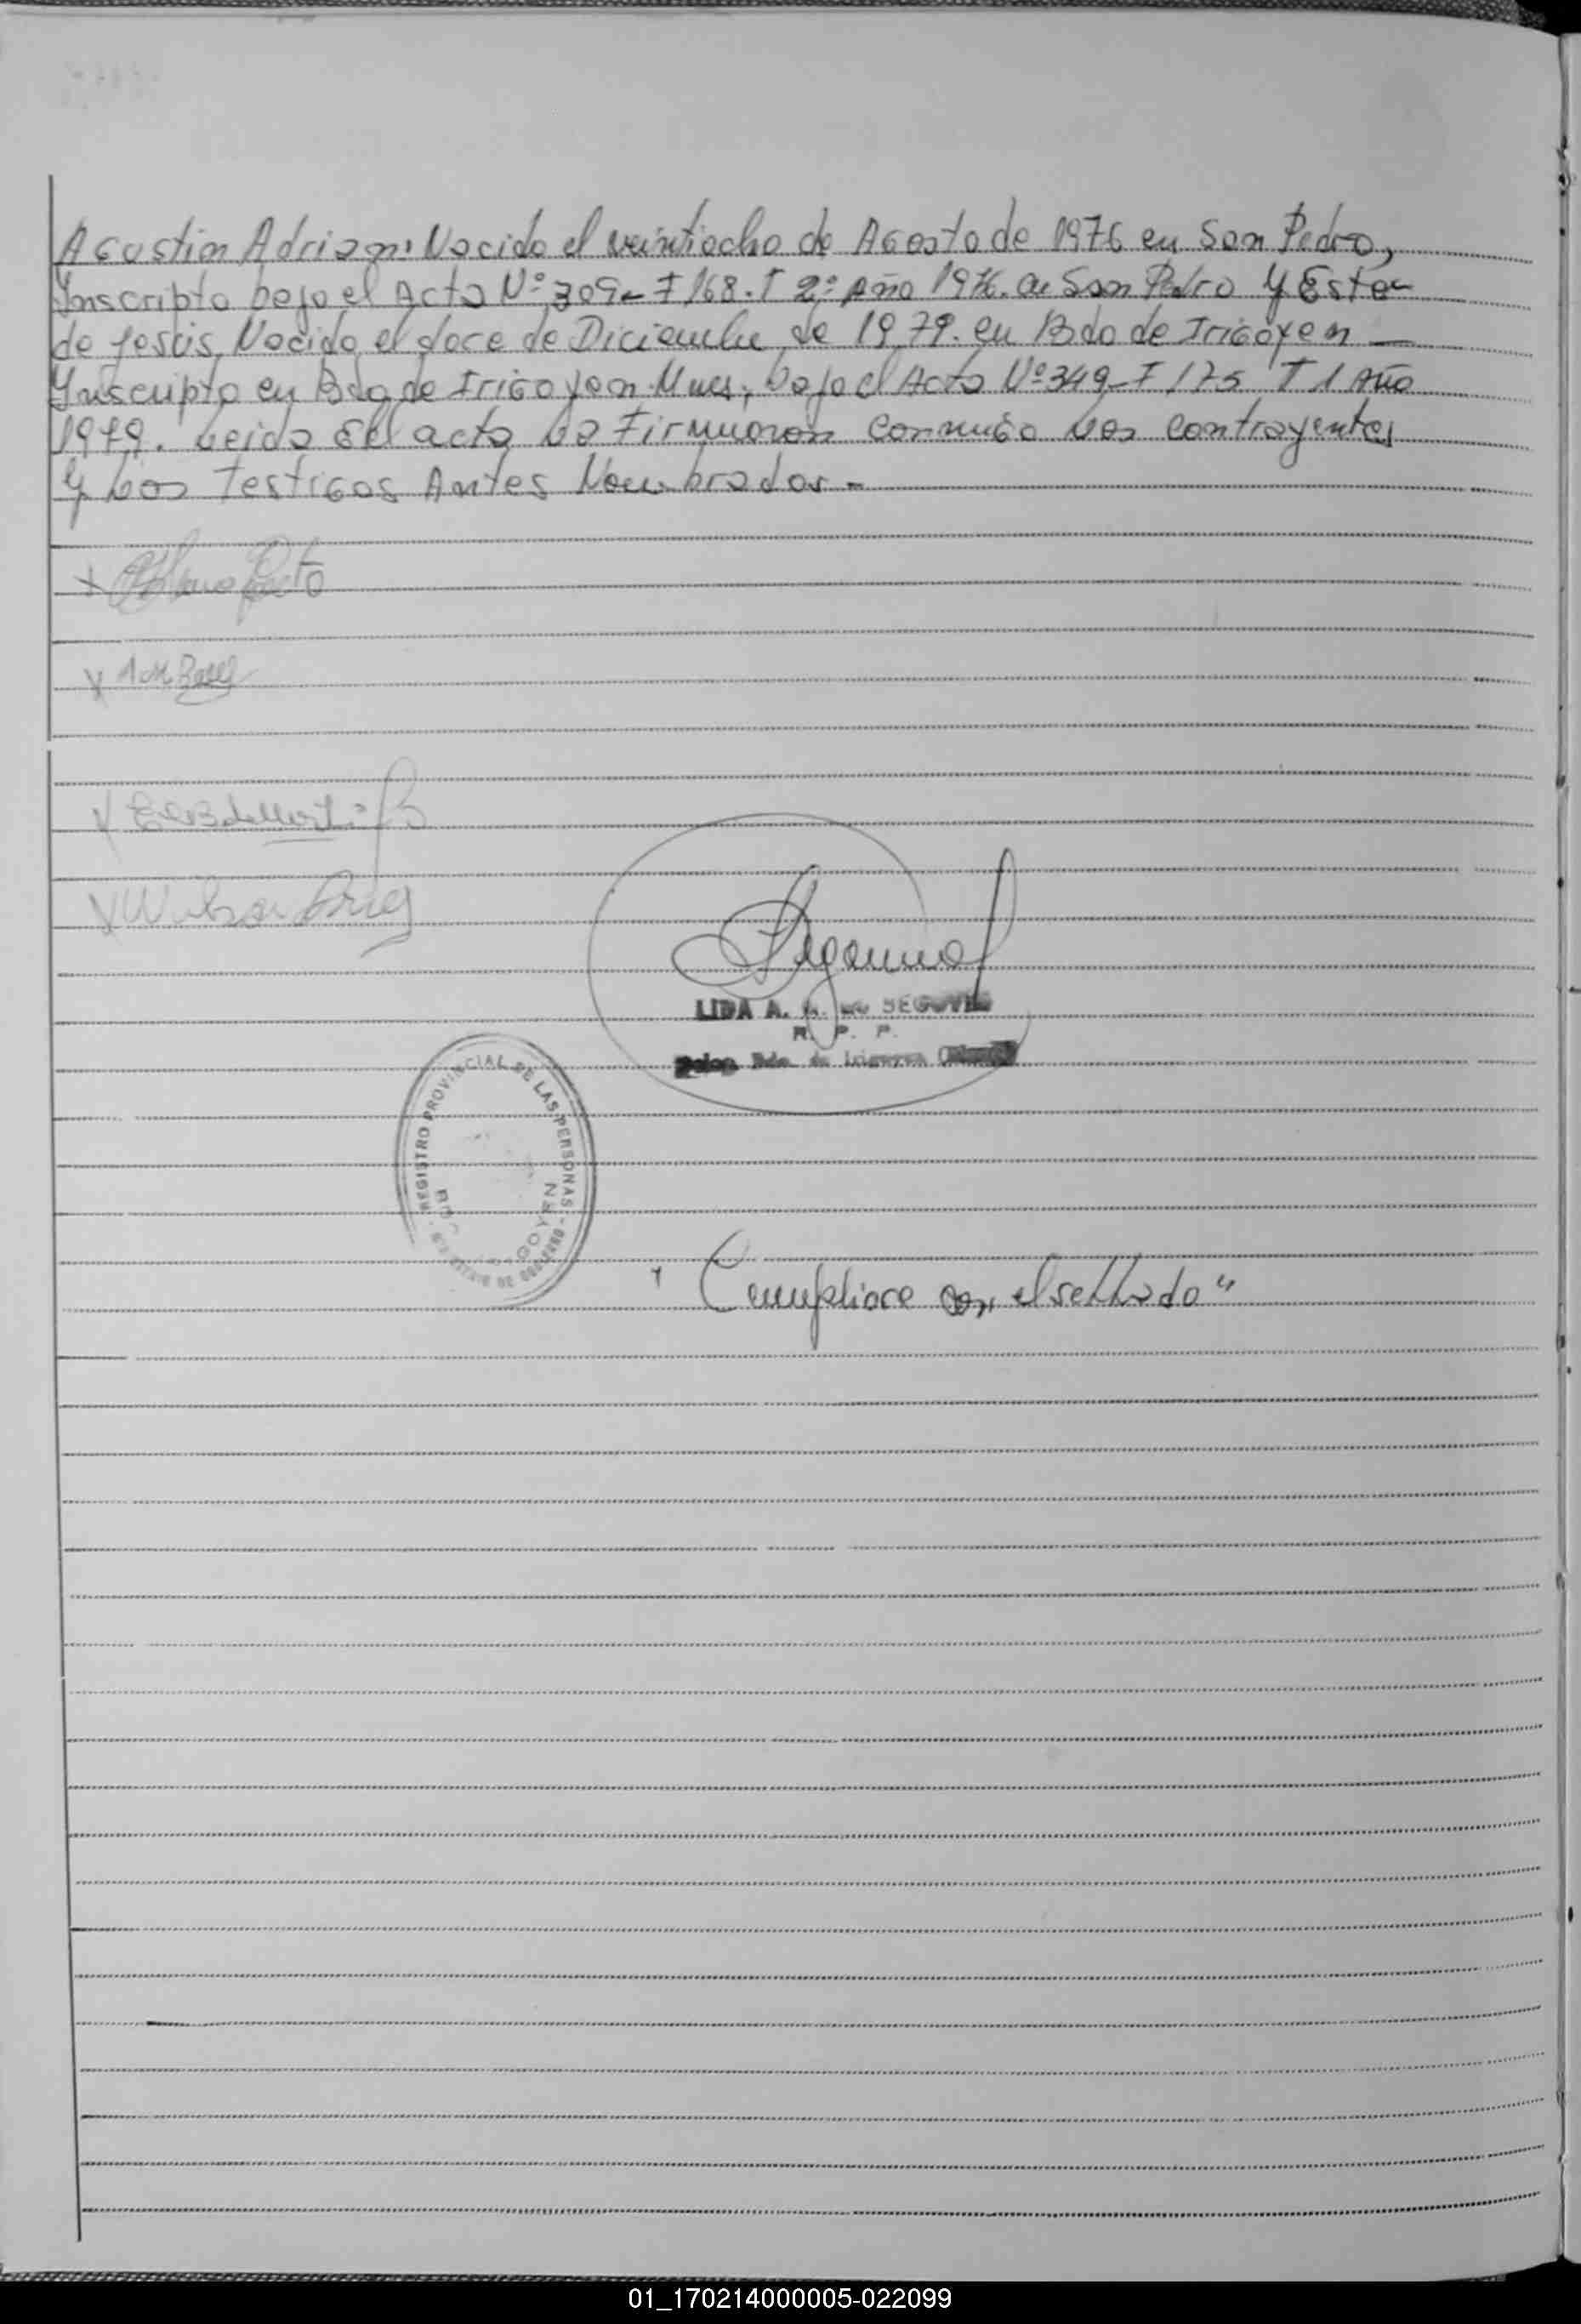 Agustin Adrian: Nacido el veintiocho de Agosto de 1976 en San Pedro,
Inscripto bajo el Acta Nº 309- F 168. T 2º Año 1976. en San Pedro y Ester
de Jesus, Nacida el doce de Diciembre de 1979. en Bdo de Irigoyen —
Inscripta en Bdo de Irigoyen Mnes, bajo el Acta Nº 349- F 175 T 1 Año
1979. Leida el acta la Firmaron conmigo los contrayentes
y los Testigos Antes Nombrados -
LIDA A. DE SEGOVIA
R. P. P.
Bdo. de Irigoyen
REGISTRO PROVINCIAL DE LAS PERSONAS
"Cumpliore con el sellado"
01_170214000005-022099